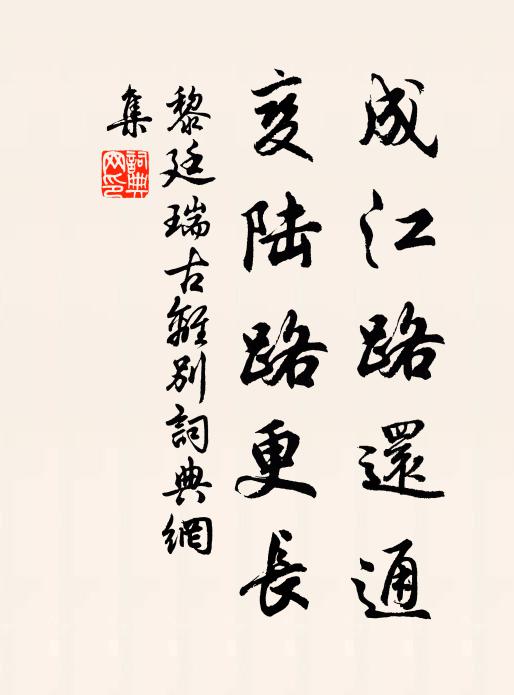 成江路還通
変陆路更長
黎廷瑞古離別詞典網
集
詞典
网印